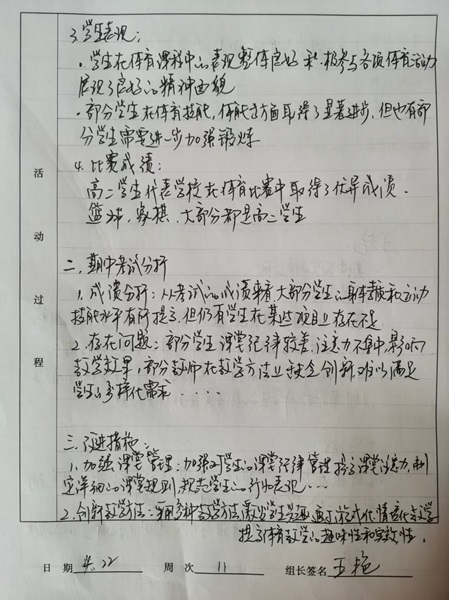 3. 学生表现:
· 学生在体育课程中的表现整体良好 积极参与各项体育活动
展现了良好的精神面貌
· 部分学生在体育技能,体能方面取得了显著进步,但也有部
分学生需要进一步加强锻炼
4. 比赛成绩:
高二学生代表学校在体育比赛中取得了优异成绩.
篮球,象棋,大部分都是高二学生
活动过程
二. 期中考试分析
1. 成绩分析:从考试的成绩来看,大部分学生的身体素质和运动
技能水平有所提高,但仍有学生在某些项目上存在不足
2. 存在问题:部分学生课堂纪律较差,注意力不集中,影响
教学效果,部分教师在教学方法上缺乏创新,难以满足
学生的多样化需求 . . . . .
三. 改进措施:
1. 加强课堂管理:加强对学生的课堂纪律管理,提高课堂注意力,制
定详细的课堂规则,规范学生的行为表现 ...
2. 创新教学方法:采用多种教学方法,激发学生兴趣,通过游戏化,情景化教学
提高体育教学的趣味性和实效性.
日 期 4.22 周 次 11 组长签名 王艳